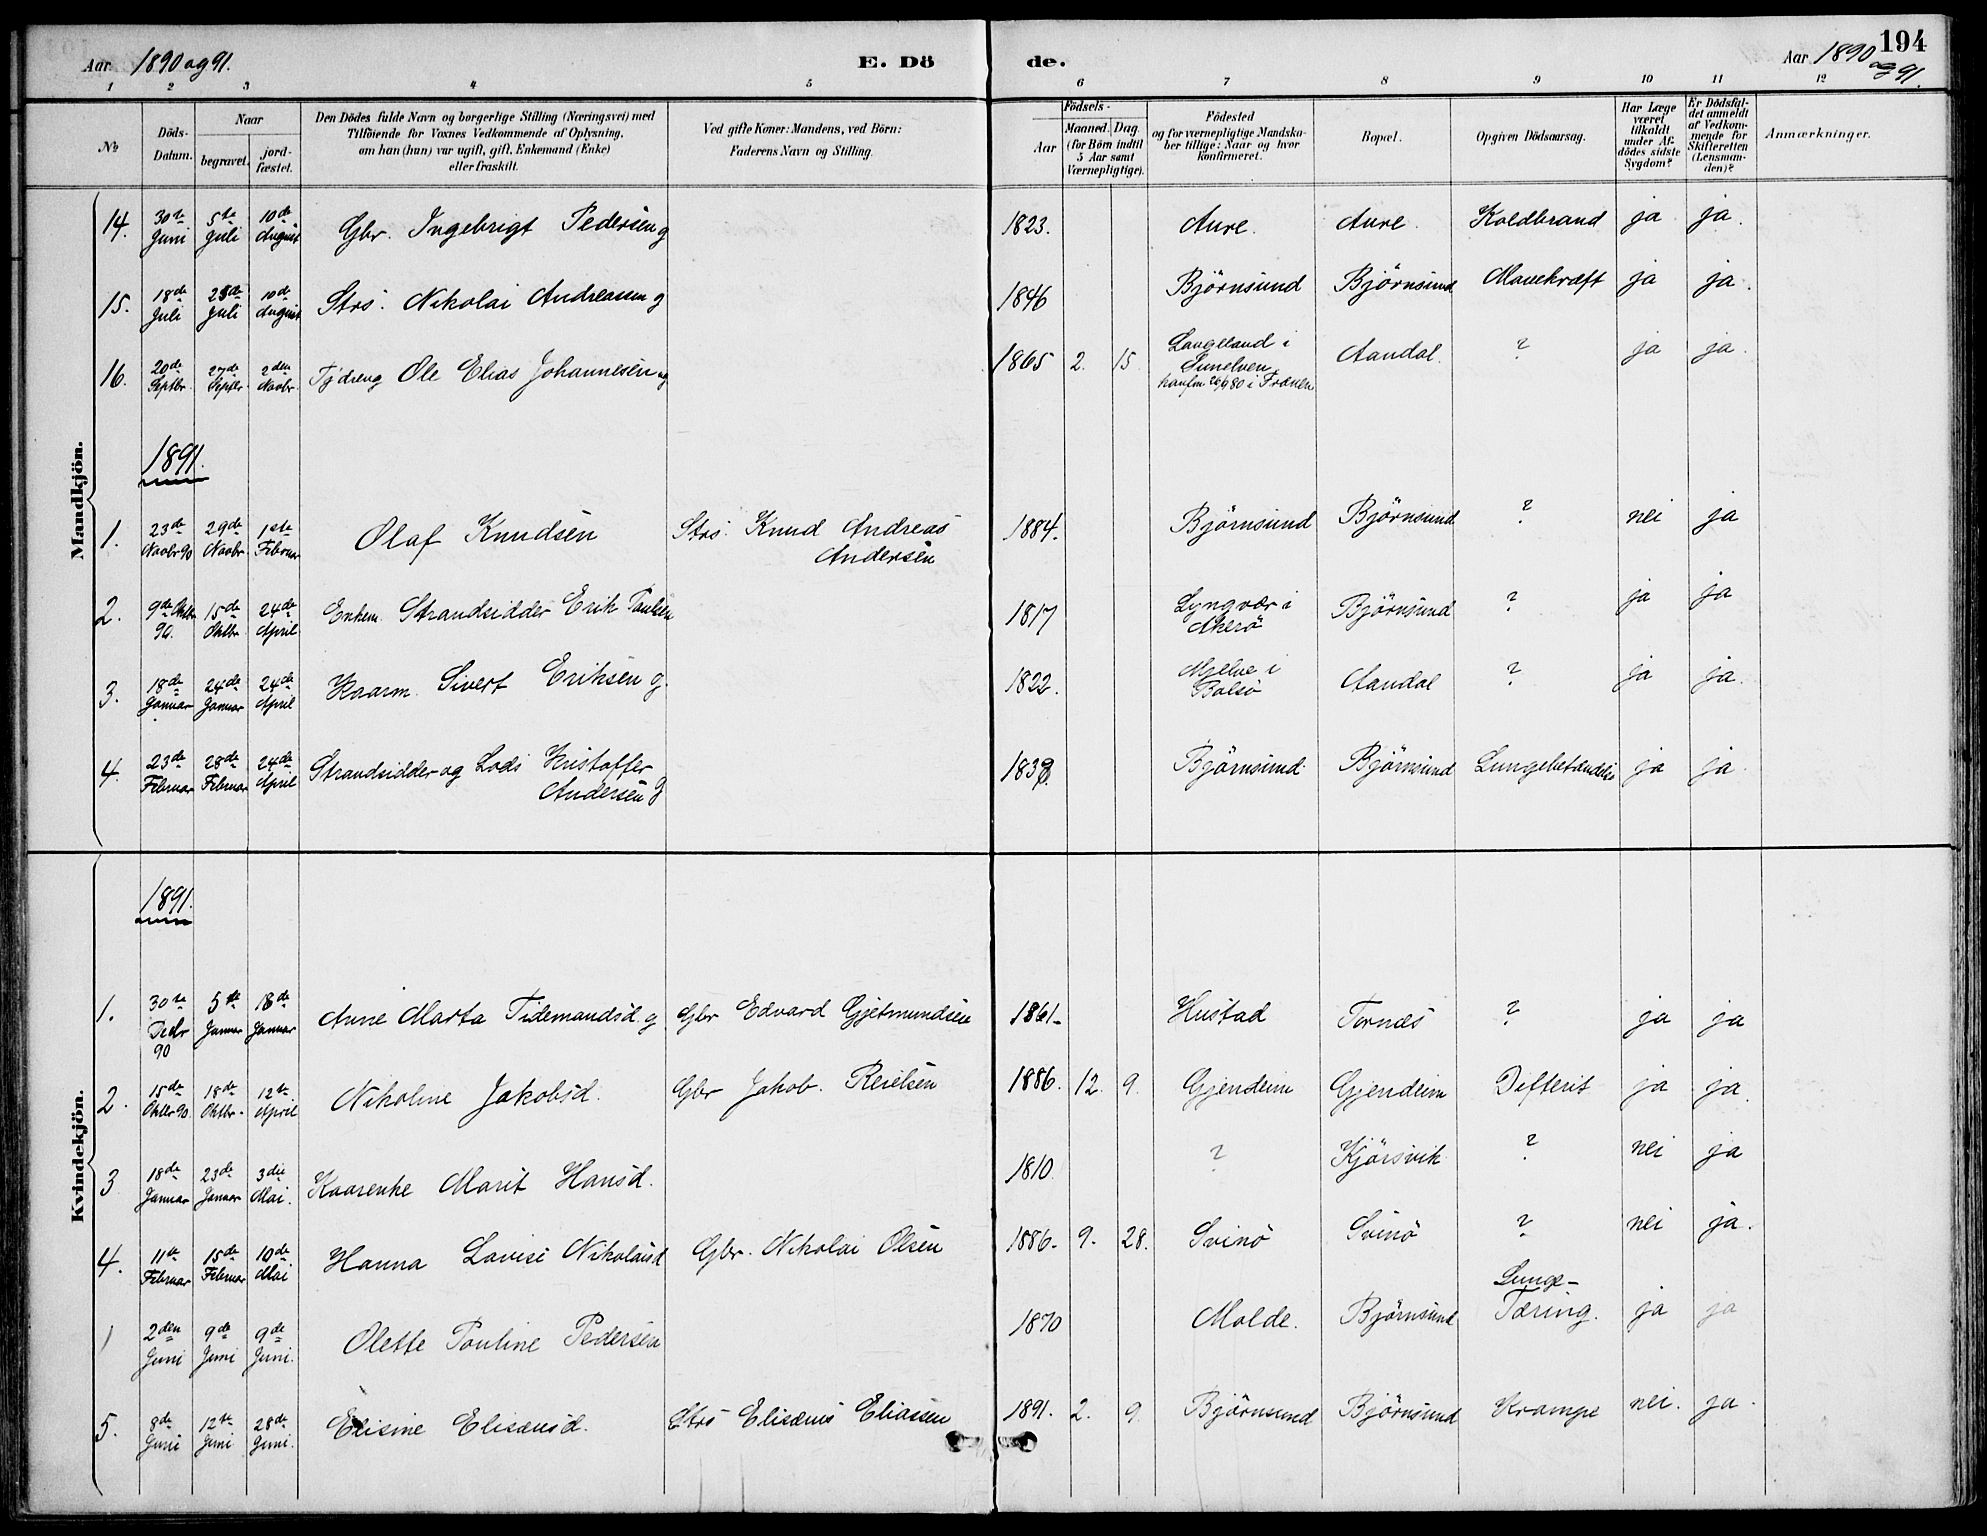 Aar 1890 og 91. E. Dö de. Aar 1890 og 91. 194
1 2 3 4 5 6 7 8 9 10 11 12
No
Döds-Datum.
Naar begravet. jordfæstet.
Den Dödes fulde Navn og borgerlige Stilling (Næringsvei) med
Tilföiende for Voxnes Vedkommende af Oplysning,
om han (hun) var ugift, gift, Enkemand (Enke)
eller fraskilt.
Ved gifte Koner: Mandens, ved Börn:
Faderens Navn og Stilling.
Födsels-
Aar Maaned. Dag.
(for Börn indtil 5 Aar samt Værnepligtige).
Födested
og for værnepligtige Mandskaber tillige: Naar og hvor konfirmeret.
Bopæl.
Opgiven Dödsaarsag.
Har Læge været tilkaldt under Afdödes sidste Sygdom?
Er Dödsfaldet anmeldt af Vedkommende for Skifteretten (Lensmanden)?
Anmærkninger.
Mandkjön.
14. 30te Juni 5te Juli 10de August Gbr. Ingebrigt Pedersen g 1823. Aure. Aure. Koldbrand ja ja.
15. 18de Juli 25de Juli 10de August Strs. Nikolai Andreassen g 1846 Björnsund Björnsund Mavekræft ja ja.
16. 20de Septbr. 27de Septbr. 2den Novbr. Tjdreng Ole Elias Johannesen ug 1865 2. 15 Langeland i Sunelven, Frænen Aandal. ? ja ja.
1891.
1. 23de Novbr 90 29de Novbr. 1ste Februar Olaf Knudsen Strs. Knud Andreas Andersen 1884. Björnsund Björnsund ? nei ja
2. 9de Oktbr 90. 15de Oktbr. 24de April Enkem. Strandsidder Erik Paulsen 1817 Lyngvær i Akerö Björnsund ? ja ja
3. 18de Januar 24de Januar 24de April Kaarm. Sivert Eriksen g. 1822. Mjelve i Bolsö Aandal ? ja ja.
4. 23de Februar 28de Februar 24de April Strandsidder og Lods Kristoffer Andersen g 1839. Björnsund Björnsund Lungebetændelse ja ja.
Kvindekjön.
1891.
1. 30te Decbr 90 5te Januar 18de Januar Anne Marta Tidemandsd. g Gbr Edvard Gjetmundsen 1861. Hustad Tornæs ? ja ja
2. 15de Oktbr 90. 18de Oktbr. 12te April Nikoline Jakobsd. Gbr Jakob. Reielsen 1886. 12. 9. Gjendeim Gjendeim Difterit ja ja.
3 18de Januar 23de Januar 3die Mai. Kaarenke Marit Hansd. 1810. ? Kjörsvik ? nei ja
4. 11te Februar 15de Februar 10de Mai Hanna Lovise Nikolaisd Gbr. Nikolai Olsen 1886. 9. 28. Svinö Svinö ? nei ja.
2den Juni 9de Juni 9de Juni. Olette Pauline Pedersen 1870 Molde. Björnsund Lunge-Tæring. ja ja
5. 8de Juni 12te Juni 28de Juni. Elisine Elisæusd. Strs Elisæus Eliassen 1891. 2. 9. Björnsund Björnsund Krampe nei. ja.